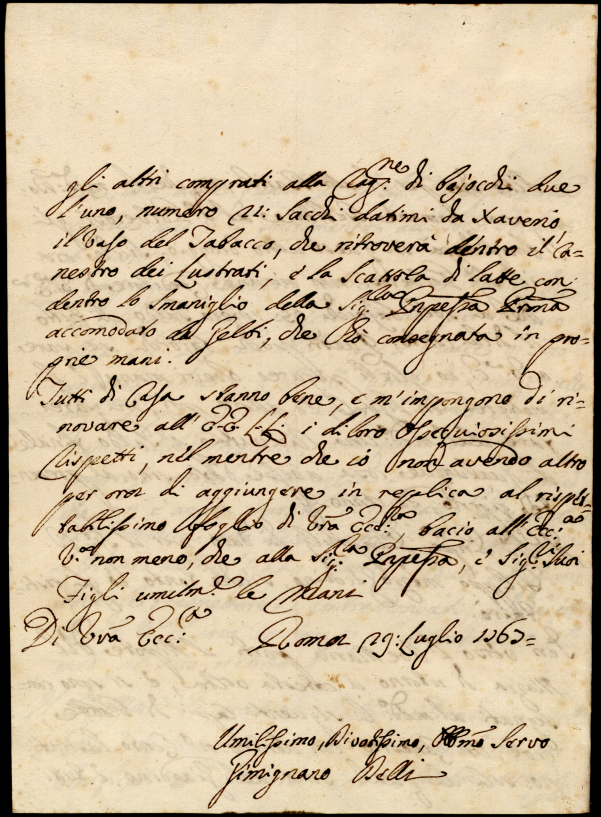 gli altri comprati alla Rag.ne di bajocchi due
l'uno, numero 21: sacchi datimi da Xaverio,
il Vaso del Tabacco, che ritroverà dentro il Ca=
nestro dei Lustrati, e la Scattola di latte con
dentro lo Smaniglio della Sig.ra Pnpessa
accomodato da Gelbi, che hò consegnata in pro=
prie mani.
Tutti di Casa stanno bene, e m'impongono di ri=
novare all' E E L: L: i di loro Ossequiosissimi
Rispetti, nel mentre che io non avendo altro
per ora di aggiungere in replica al rispet=
tabilissimo foglio di Vra Ecc:za bacio all' Ecc:za
V.a non meno, che alla Sig.ra Pnpessa, e Sig.ri Suoi
Figli umilm.e le Mani
Di Vra Ecc:a Roma 29: Luglio 1763=
Umilissimo, Divotissimo, Obbmo Servo
Gimignano Belli